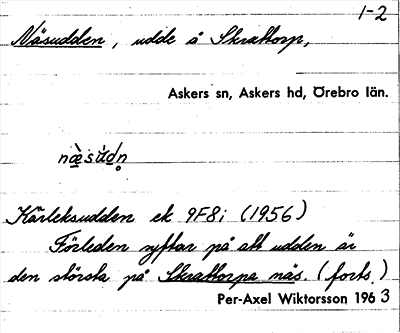 1-2
Näsudden, udde å Skrattorp,
Askers sn, Askers hd, Örebro län.
næ̀sùdn̥
Kärleksudden ek 9F8i (1956)
Förleden syftar på att udden är
den största på Skrattorpa näs. (forts.)
Per-Axel Wiktorsson 1963